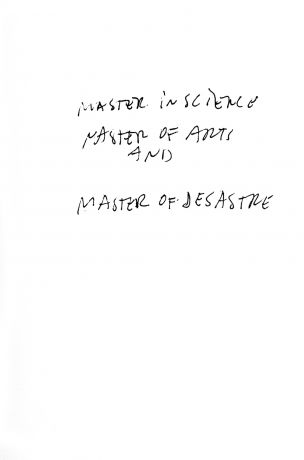 MASTER IN SCIENCE
MASTER OF ARTS
AND
MASTER OF DESASTRE